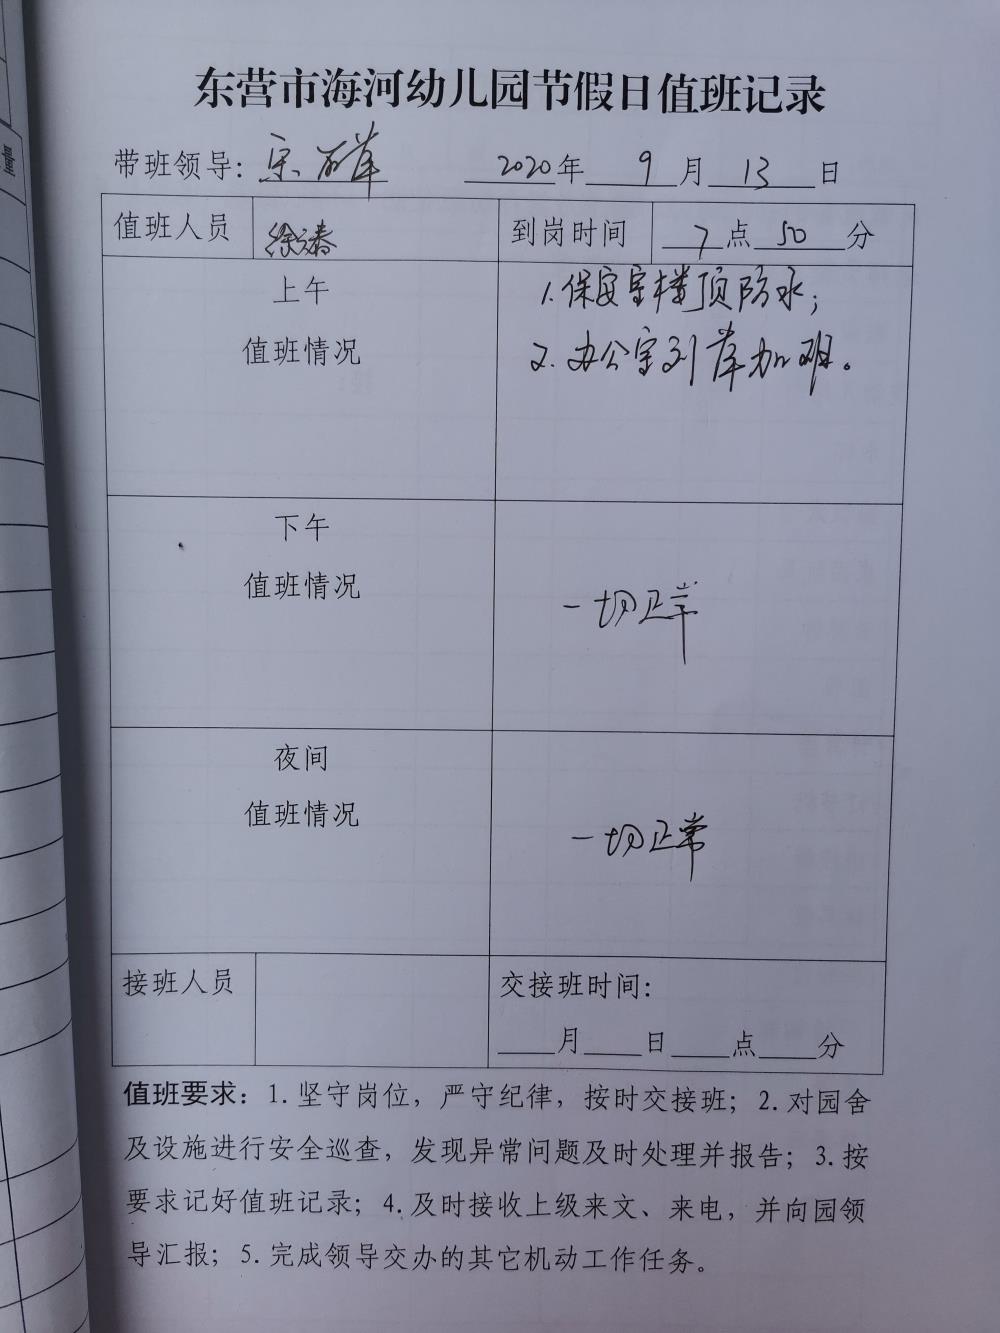 量
东营市海河幼儿园节假日值班记录
带班领导: 宋 2020年 9 月 13 日
值班人员 徐 到岗时间 7 点 50 分
上午
值班情况
1.保安室楼顶防水；
2.办公室刘 加班。
下午
值班情况
一切正常
夜间
值班情况
一切正常
接班人员 交接班时间:
月 日 点 分
值班要求: 1. 坚守岗位，严守纪律，按时交接班；2. 对园舍
及设施进行安全巡查，发现异常问题及时处理并报告；3. 按
要求记好值班记录；4. 及时接收上级来文、来电，并向园领
导汇报；5. 完成领导交办的其它机动工作任务。